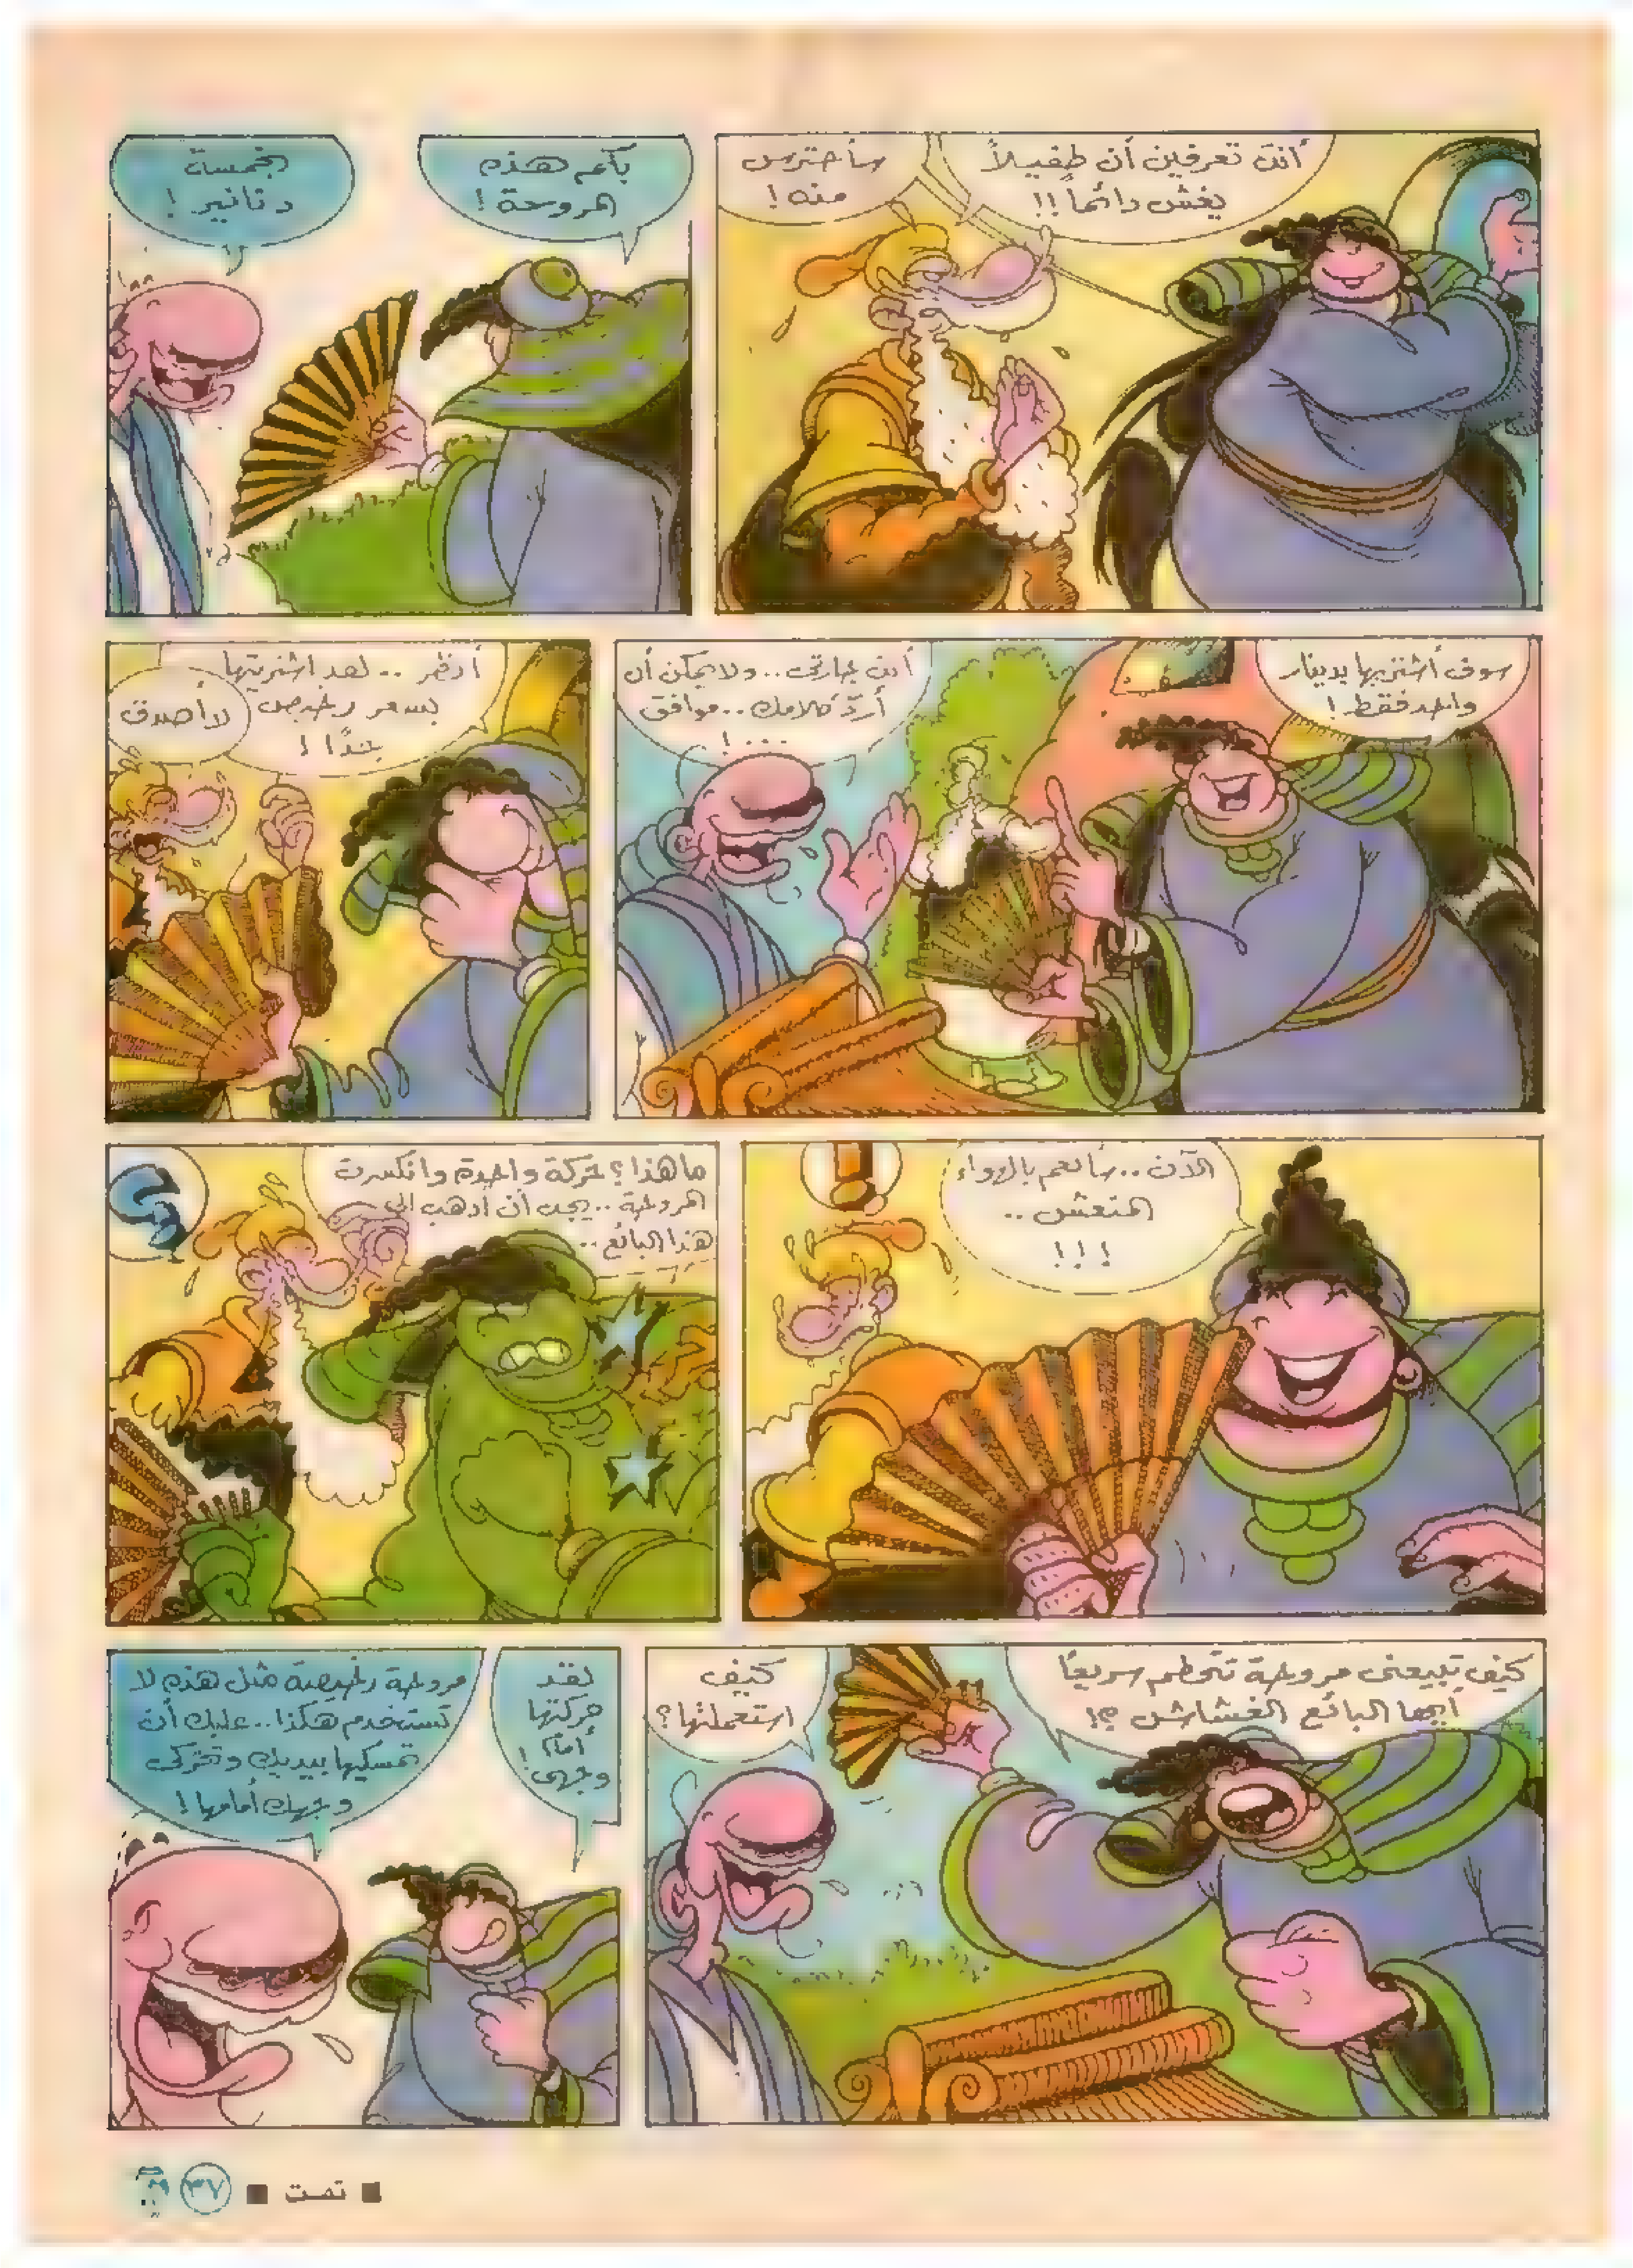 أنت تعرفين أن طفيلاً
يغش دائماً!!
سأحترس
منه!
بكم هذه
المروحة!
بخمسة
دنانير!
سوف أشتريها بدينار
واحد فقط!
أنت جارتى.. ولا يمكن أن
أردّ كلامك.. موافق
...!
أنظر.. لقد اشتريتها
بسعر رخيص
جدًا!
لا أصدق
الآن.. سأنعم بالهواء
المنعش..
!!!
!
ما هذا؟ حركة واحدة وانكسرت
المروحة.. يجب أن أذهب إلى
هذا البائع..
؟
كيف تبيعنى مروحة تتحطم سريعًا
أيها البائع الغشاش؟!
كيف
استعملتها؟
لقد
حركتها
أمام
وجهى!
مروحة رخيصة مثل هذه لا
تستخدم هكذا.. عليك أن
تمسكيها بيديك وتحركى
وجهك أمامها!
■ تمت ■ ٣٧